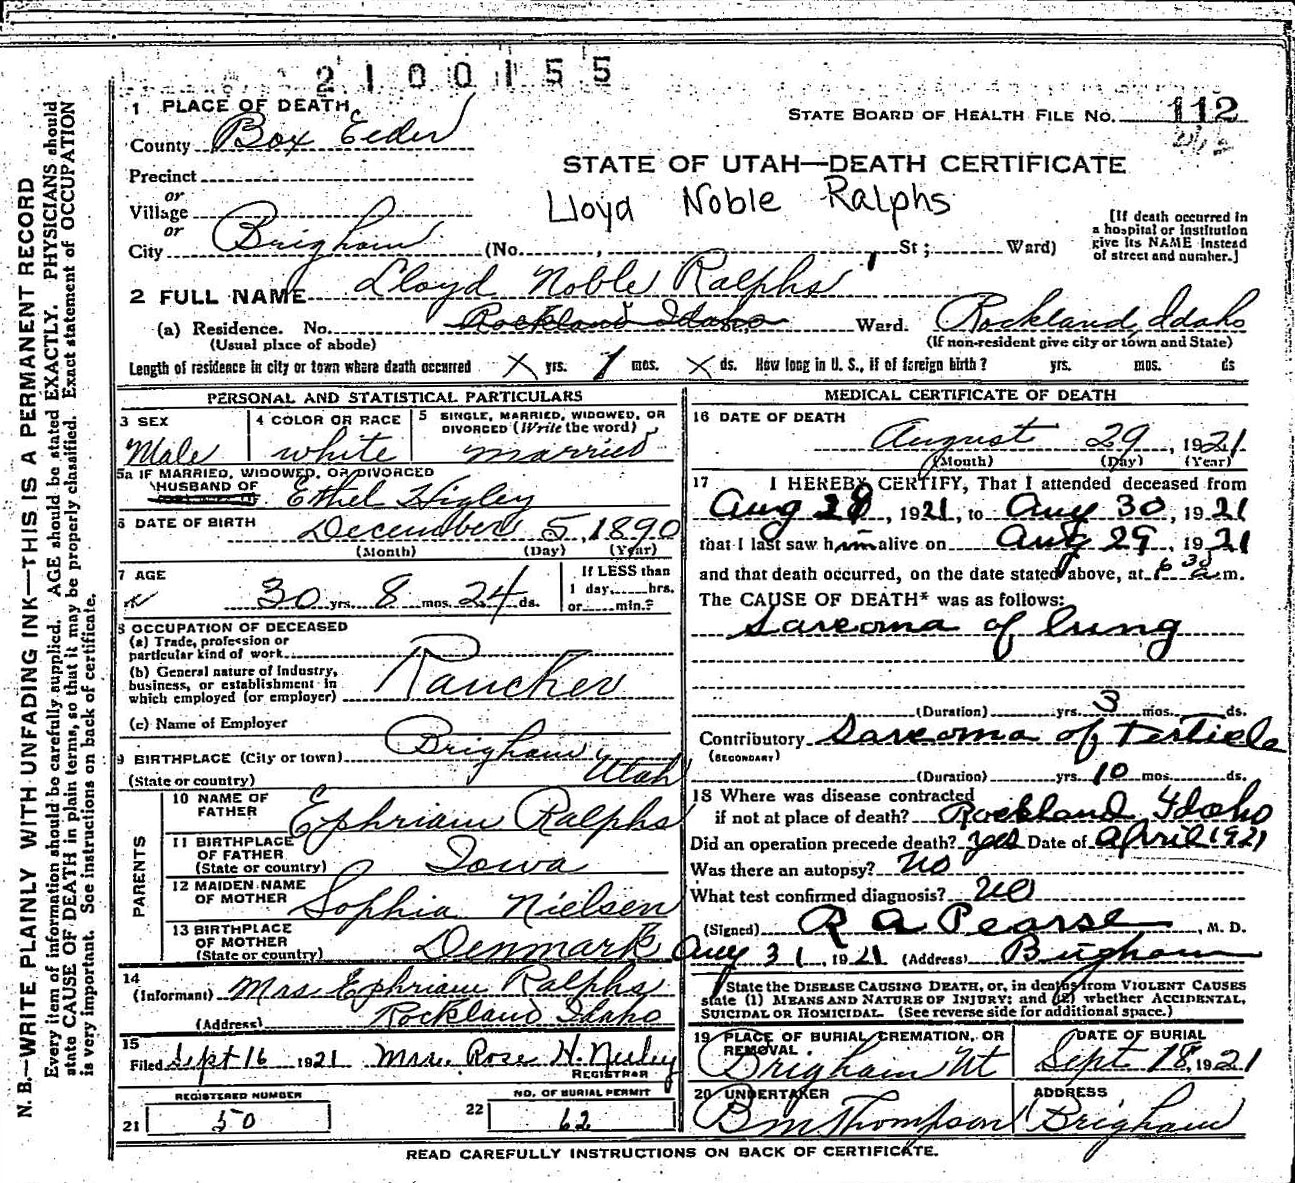 2100155
1 PLACE OF DEATH
STATE BOARD OF HEALTH FILE NO. 112
County Box Elder
STATE OF UTAH—DEATH CERTIFICATE
Precinct
or
Lloyd Noble Ralphs
Village
or
City Brigham (No. , St; Ward)
[If death occurred in
a hospital or institution
give its NAME instead
of street and number.]
2 FULL NAME Lloyd Noble Ralphs
(a) Residence. No. Rockland Idaho Ward. Rockland, Idaho
(Usual place of abode) (If non-resident give city or town and State)
Length of residence in city or town where death occurred X yrs. 1 mos. X ds. How long in U. S., if of foreign birth? yrs. mos. ds
PERSONAL AND STATISTICAL PARTICULARS
3 SEX
Male
4 COLOR OR RACE
white
5 SINGLE, MARRIED, WIDOWED, OR
DIVORCED (Write the word)
married
5a IF MARRIED, WIDOWED, OR DIVORCED
HUSBAND OF Ethel Higley
6 DATE OF BIRTH December 5, 1890
(Month) (Day) (Year)
7 AGE
30 yrs. 8 mos. 24 ds.
If LESS than
1 day, hrs.
or min.?
8 OCCUPATION OF DECEASED
(a) Trade, profession or
particular kind of work
(b) General nature of Industry,
business, or establishment in
which employed (or employer) Rancher
(c) Name of Employer
9 BIRTHPLACE (City or town) Brigham
(State or country) Utah
PARENTS
10 NAME OF
FATHER Ephriam Ralphs
11 BIRTHPLACE
OF FATHER
(State or country) Iowa
12 MAIDEN NAME
OF MOTHER Sophia Nielsen
13 BIRTHPLACE
OF MOTHER
(State or country) Denmark
14
(Informant) Mrs Ephriam Ralphs
(Address) Rockland Idaho
15
Filed Sept 16 1921 Mrs. Rose H. Neeley
REGISTRAR
REGISTERED NUMBER
21 50
NO. OF BURIAL PERMIT
22 62
MEDICAL CERTIFICATE OF DEATH
16 DATE OF DEATH
August 29, 1921
(Month) (Day) (Year)
17 I HEREBY CERTIFY, That I attended deceased from
Aug 28, 1921, to Aug 30, 1921
that I last saw him alive on Aug 29, 1921
and that death occurred, on the date stated above, at 6 30 a m.
The CAUSE OF DEATH* was as follows:
Sarcoma of lung
(Duration) yrs. 3 mos. ds.
Contributory Sarcoma of Testicle
(SECONDARY)
(Duration) yrs. 10 mos. ds.
18 Where was disease contracted
if not at place of death? Rockland Idaho
Did an operation precede death? yes Date of April 1921
Was there an autopsy? No
What test confirmed diagnosis? No
(Signed) R A Pearse, M. D.
Aug 31, 1921 (Address) Brigham
State the DISEASE CAUSING DEATH, or, in deaths from VIOLENT CAUSES
state (1) MEANS AND NATURE OF INJURY; and (2) whether ACCIDENTAL,
SUICIDAL OR HOMICIDAL. (See reverse side for additional space.)
19 PLACE OF BURIAL, CREMATION, OR
REMOVAL
Brigham Ut
DATE OF BURIAL
Sept 18, 1921
20 UNDERTAKER
B M Thompson
ADDRESS
Brigham
READ CAREFULLY INSTRUCTIONS ON BACK OF CERTIFICATE.
N. B.—WRITE PLAINLY WITH UNFADING INK—THIS IS A PERMANENT RECORD
Every item of information should be carefully supplied. AGE should be stated EXACTLY. PHYSICIANS should
state CAUSE OF DEATH in plain terms, so that it may be properly classified. Exact statement of OCCUPATION
is very important. See instructions on back of certificate.